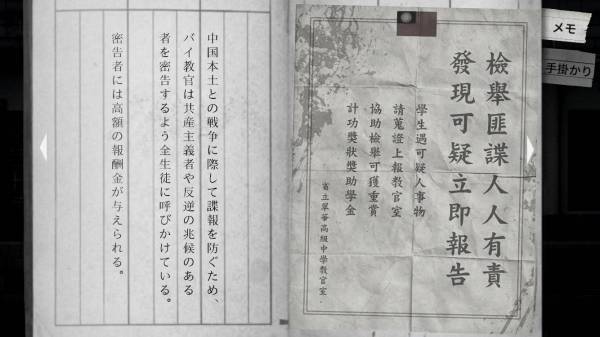 中国本土との戦争に際して諜報を防ぐため、
バイ教官は共産主義者や反逆の兆候のある
者を密告するよう全生徒に呼びかけている。
密告者には高額の報酬金が与えられる。
檢舉匪諜人人有責
發現可疑立即報告
學生遇可疑人事物
請蒐證上報教官室
協助檢舉可獲重賞
計功獎狀獎助學金
省立翠華高級中學教官室.
メモ
手掛かり